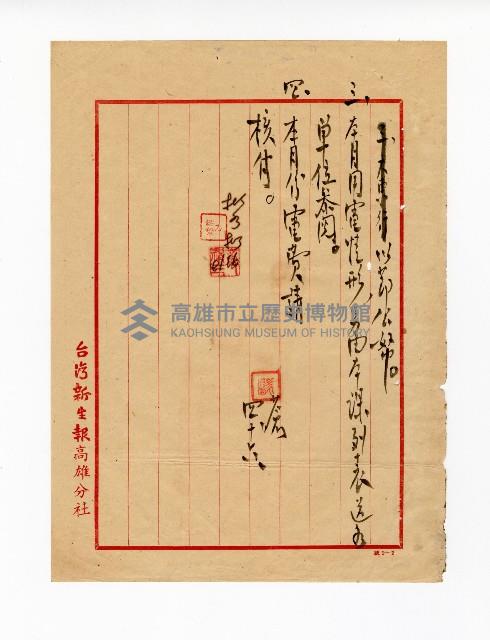 以節公帑。
三、本月用電情形另由本課列表送各
單位參閱。
四、本月份電費請
核付。
四十六
台灣新生報高雄分社
高雄市立歷史博物館
KAOHSIUNG MUSEUM OF HISTORY